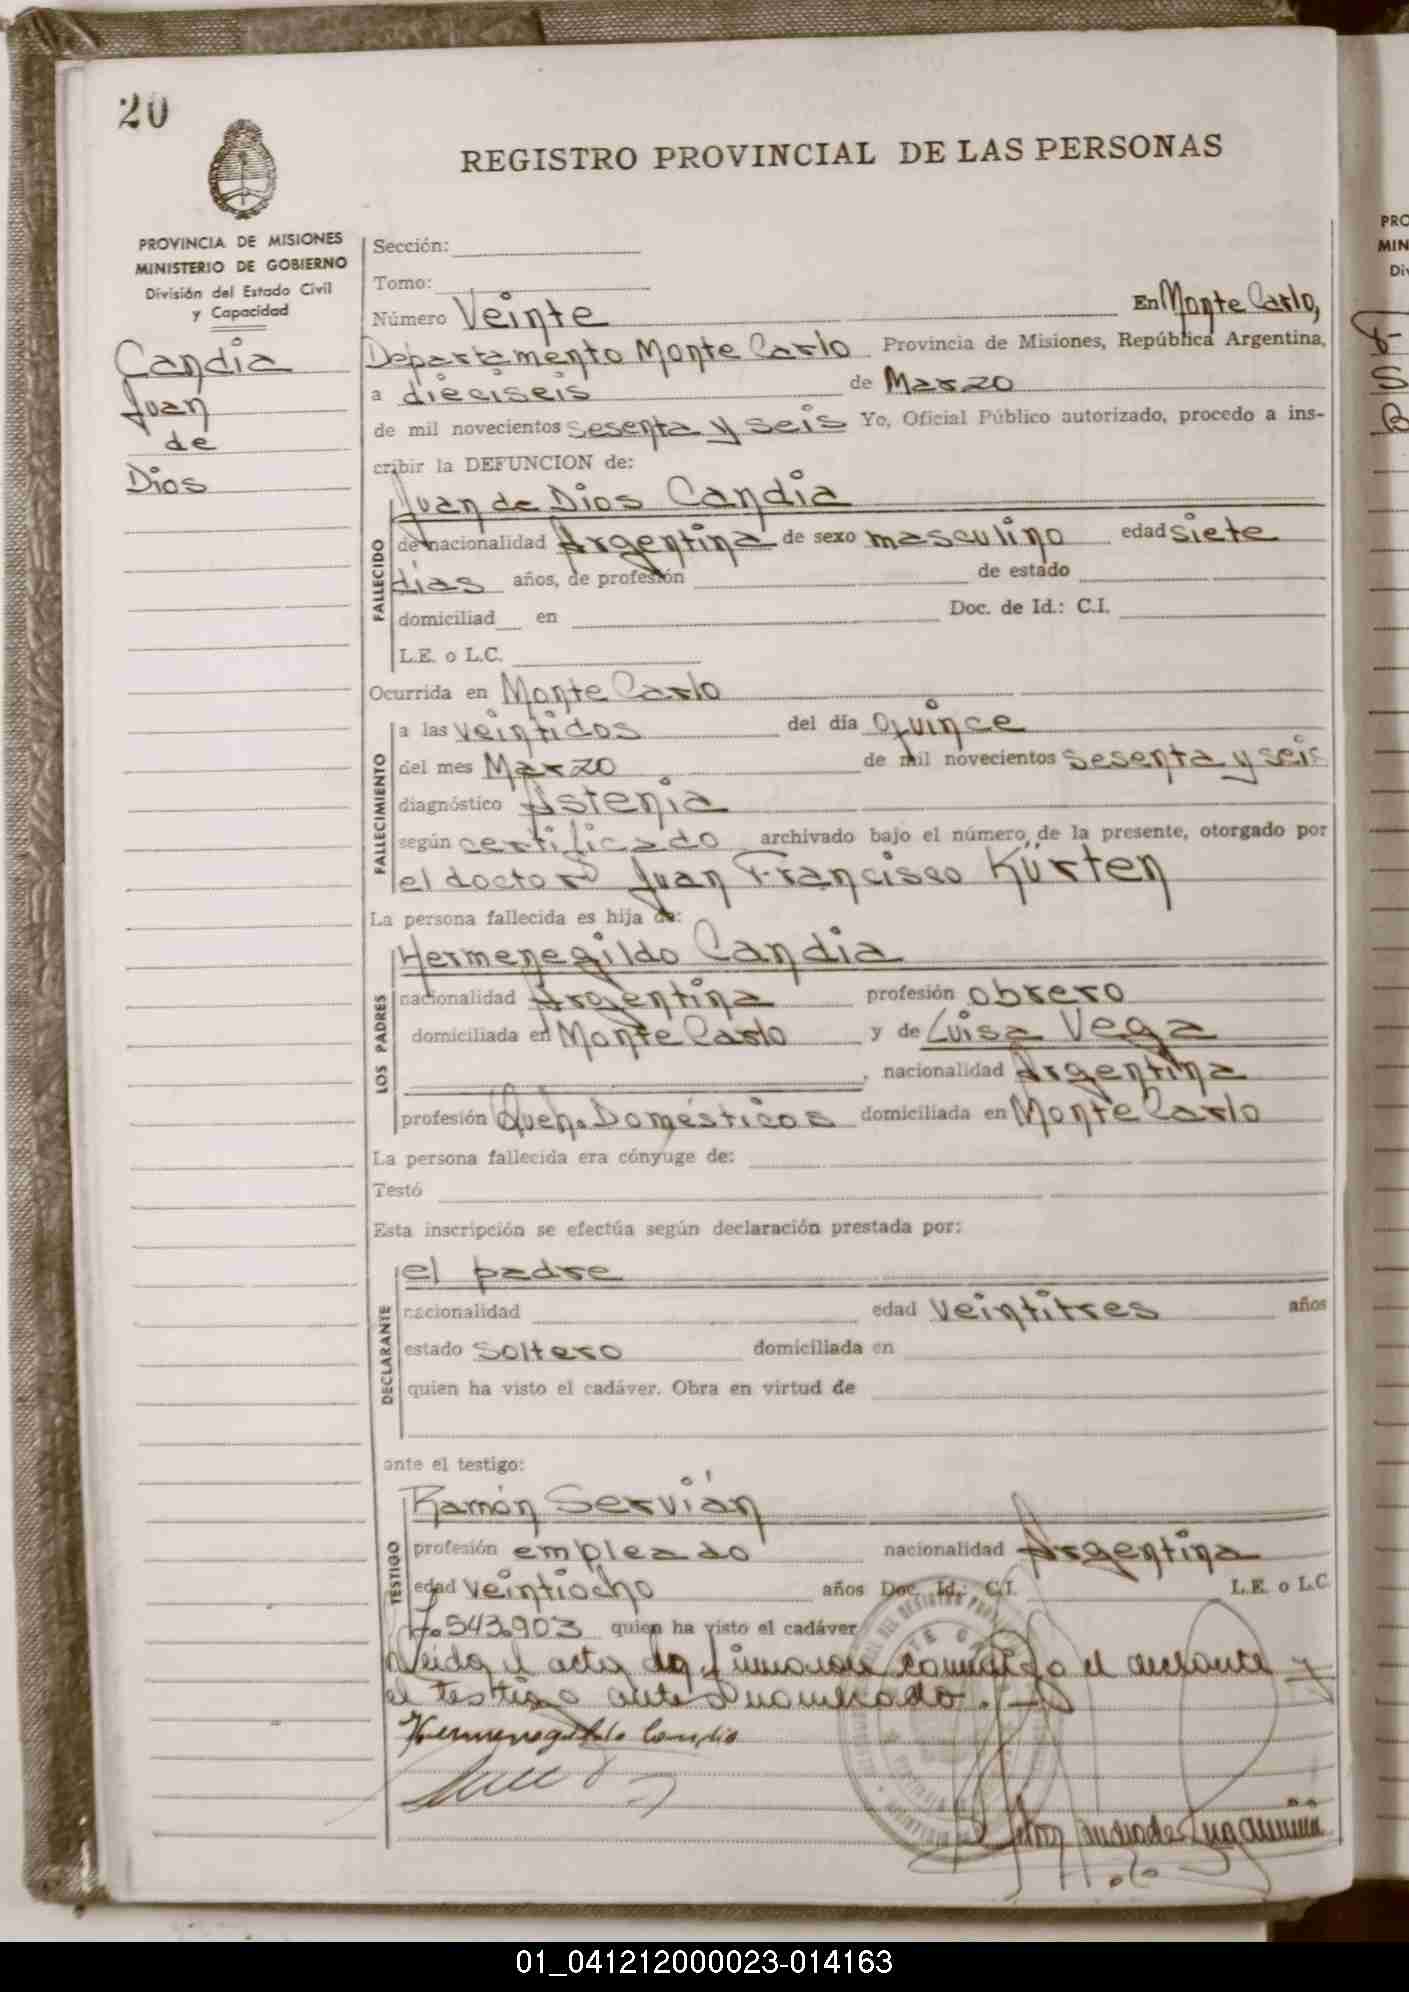 20
REGISTRO PROVINCIAL DE LAS PERSONAS
PROVINCIA DE MISIONES
MINISTERIO DE GOBIERNO
División del Estado Civil
y Capacidad
Candia
Juan
de
Dios
Sección:
Tomo:
Número Veinte En Monte Carlo,
Departamento Monte Carlo Provincia de Misiones, República Argentina,
a dieciseis de Marzo
de mil novecientos sesenta y seis Yo, Oficial Público autorizado, procedo a ins-
cribir la DEFUNCION de:
FALLECIDO
Juan de Dios Candia
de nacionalidad Argentina de sexo masculino edad siete
días años, de profesión de estado
domiciliad en Doc. de Id.: C.I.
L.E. o L.C.
Ocurrida en Monte Carlo
FALLECIMIENTO
a las veintidos del día quince
del mes Marzo de mil novecientos sesenta y seis
diagnóstico Astenia
según certificado archivado bajo el número de la presente, otorgado por
el doctor Juan Francisco Kürten
La persona fallecida es hija de:
LOS PADRES
Hermenegildo Candia
nacionalidad Argentina profesión obrero
domiciliada en Monte Carlo y de Luisa Vega
, nacionalidad Argentina
profesión Queh. Domésticos domiciliada en Monte Carlo
La persona fallecida era cónyuge de:
Testó
Esta inscripción se efectúa según declaración prestada por:
DECLARANTE
el padre
nacionalidad edad veintitres años
estado soltero domiciliada en
quien ha visto el cadáver. Obra en virtud de
ante el testigo:
TESTIGO
Ramón Servián
profesión empleado nacionalidad Argentina
edad veintiocho años Doc. Id.: C.I. L.E. o L.C.
7.543.903 quien ha visto el cadáver
Leida el acta la firmaron conmigo el declarante y
el testigo antes nombrado.
Hermenegildo Candia
PRO
MIN
Di
01_041212000023-014163